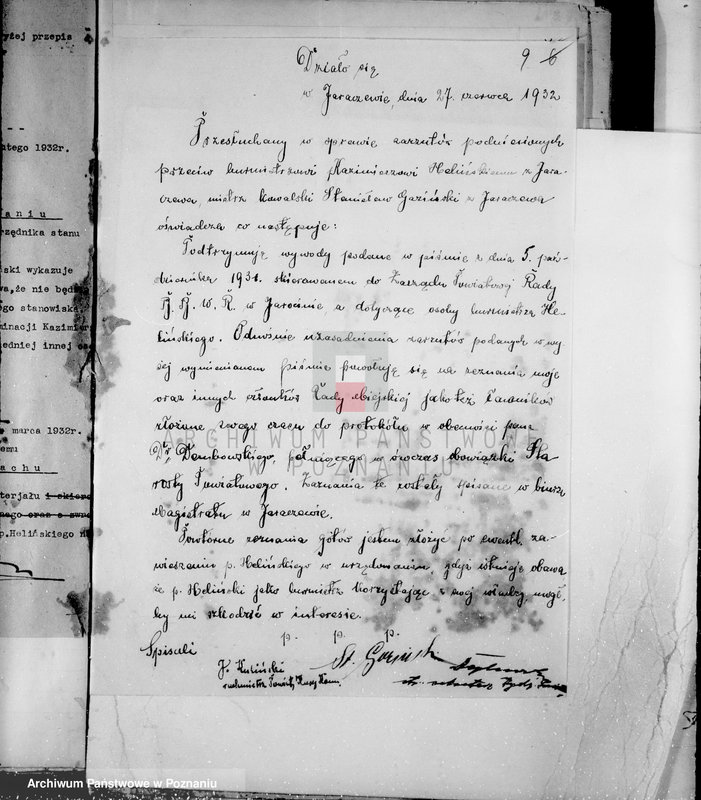 yżej przepis
tego 1932r.
aniu
rzędnika stanu
ski wykazuje
wa,że nie będ
ego stanowiska
minacji Kazimier
edniej innej
marca 1932r.
emu
achu
terjału i skiero
nego oraz z
p.Helińskiego n
9 6
Działo się
w Jaraczewie, dnia 27. czerwca 1932
Przesłuchany w sprawie zarzutów podniesionych
przeciw burmistrzowi Kazimierzowi Helińskiemu z Jara-
czewa, mistrz kowalski Stanisław Goziński z Jaraczewa
oświadcza co następuje:
Podtrzymuję wywody podane w piśmie z dnia 5. paź-
dziernika 1931. skierowanem do Zarządu Powiatowej Rady
B. B. W. R. w Jarocinie, a dotyczące osoby burmistrza He-
lińskiego. Odnośnie uzasadnienia zarzutów podanych w wy-
żej wymienionem piśmie powołuję się na zeznania moje
oraz innych członków Rady Miejskiej jakoteż ławników
złożone swego czasu do protokółu w obecności pana
Dr. Dembowskiego, pełniącego w ówczas obowiązki Sta-
rosty Powiatowego. Zeznania te zostały spisane w biurze
Magistratu w Jaraczewie.
Powtórne zeznania gotów jestem złożyć po ewentl. za-
wieszeniu p. Helińskiego w urzędowaniu, gdyż istnieje obawa
że p. Heliński jako burmistrz korzystając z swej władzy mógł-
by mi szkodzić w interesie.
p. p. p.
Spisali
St.
J. Kusiński
ARCHIWUM PAŃSTWOWE
W POZNANIU
Archiwum Państwowe w Poznaniu